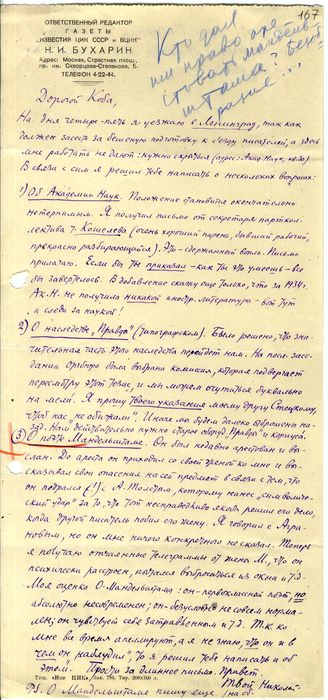 167
ОТВЕТСТВЕННЫЙ РЕДАКТОР
ГАЗЕТЫ
"ИЗВЕСТИЯ ЦИК СССР и ВЦИК"
Н. И. БУХАРИН
Адрес: Москва, Страстная площ.,
пр. им. Скворцова-Степанова, 5.
ТЕЛЕФОН 4-22-44.
Кто дал
им право аре-
стовать Мандель-
штама? Безо-
бразие...
Дорогой Коба,
На дня четыре-пять я уезжаю в Ленинград, так как
должен засесть за бешеную подготовку к съезду писателей, а здесь
мне работать не дают: нужно скрыться (адрес: Акад. Наук, кв. 30).
В связи с сим я решил тебе написать о нескольких вопросах:
1) Об Академии Наук. Положение становится окончательно
нетерпимым. Я получил письмо от секретаря парткол-
лектива т. Кошелева (очень хороший парень, бывший рабочий,
прекрасно разбирающийся). Это - сдержанный вопль. Письмо
прилагаю. Если бы ты приказал - как ты это умеешь - все
бы завертелось. В добавление скажу еще только, что за 1934г.
Ак. Н. не получила никакой иностр. литературы - вот тут
и следи за наукой!
2) О наследстве "Правды" (типографском). Было решено, что зна-
чительная часть этого наследства перейдет нам. На посл. засе-
дании Оргбюро была выбрана комиссия, которая подвергает
пересмотру этот тезис, и мы можем очутиться буквально
на мели. Я прошу твоего указания моему другу Стецкому,
чтоб нас не обижали". Иначе мы будем далеко отброшены на-
зад. Нам действительно нужно старое оборуд. "Правды" и корпуса.
3) О поэте Мандельштаме. Он был недавно арестован и вы-
слан. До ареста он приходил со своей женой ко мне и вы-
сказывал свои опасения на сей предмет в связи с тем, что
он подрался (!) с А. Толстым, которому нанес "символиче-
ский удар" за то, что тот несправедливо якобы решил его дело,
когда другой писатель побил его жену. Я говорил с Агра-
новым, но он мне ничего конкретного не сказал. Теперь
я получаю отчаянные телеграммы от жены М., что он
психически расстроен, пытался выброситься из окна и т.д.
Моя оценка О. Мандельштама: он - первоклассный поэт, но
абсолютно несовременен; он - безусловно не совсем норма-
лен; он чувствует себя затравленным и т.д. Т.к. ко
мне все время апеллируют, а я не знаю, что он и в
чем он "наблудил", то я решил тебе написать и об
этом. Прости за длинное письмо. Привет.
Твой Николай
P.S. О Мандельштаме пишу еще раз (на об.